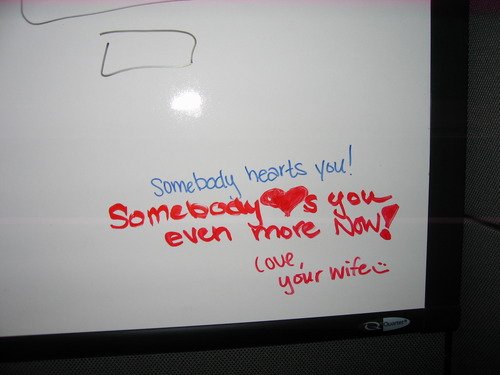 Somebody hearts you!
Somebody ♥s you
even more Now!
Love,
your wife☺
Quartet